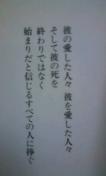 彼の愛した人々 彼を愛した人々
そして彼の死を
終わりではなく
始まりだと信じるすべての人に捧ぐ